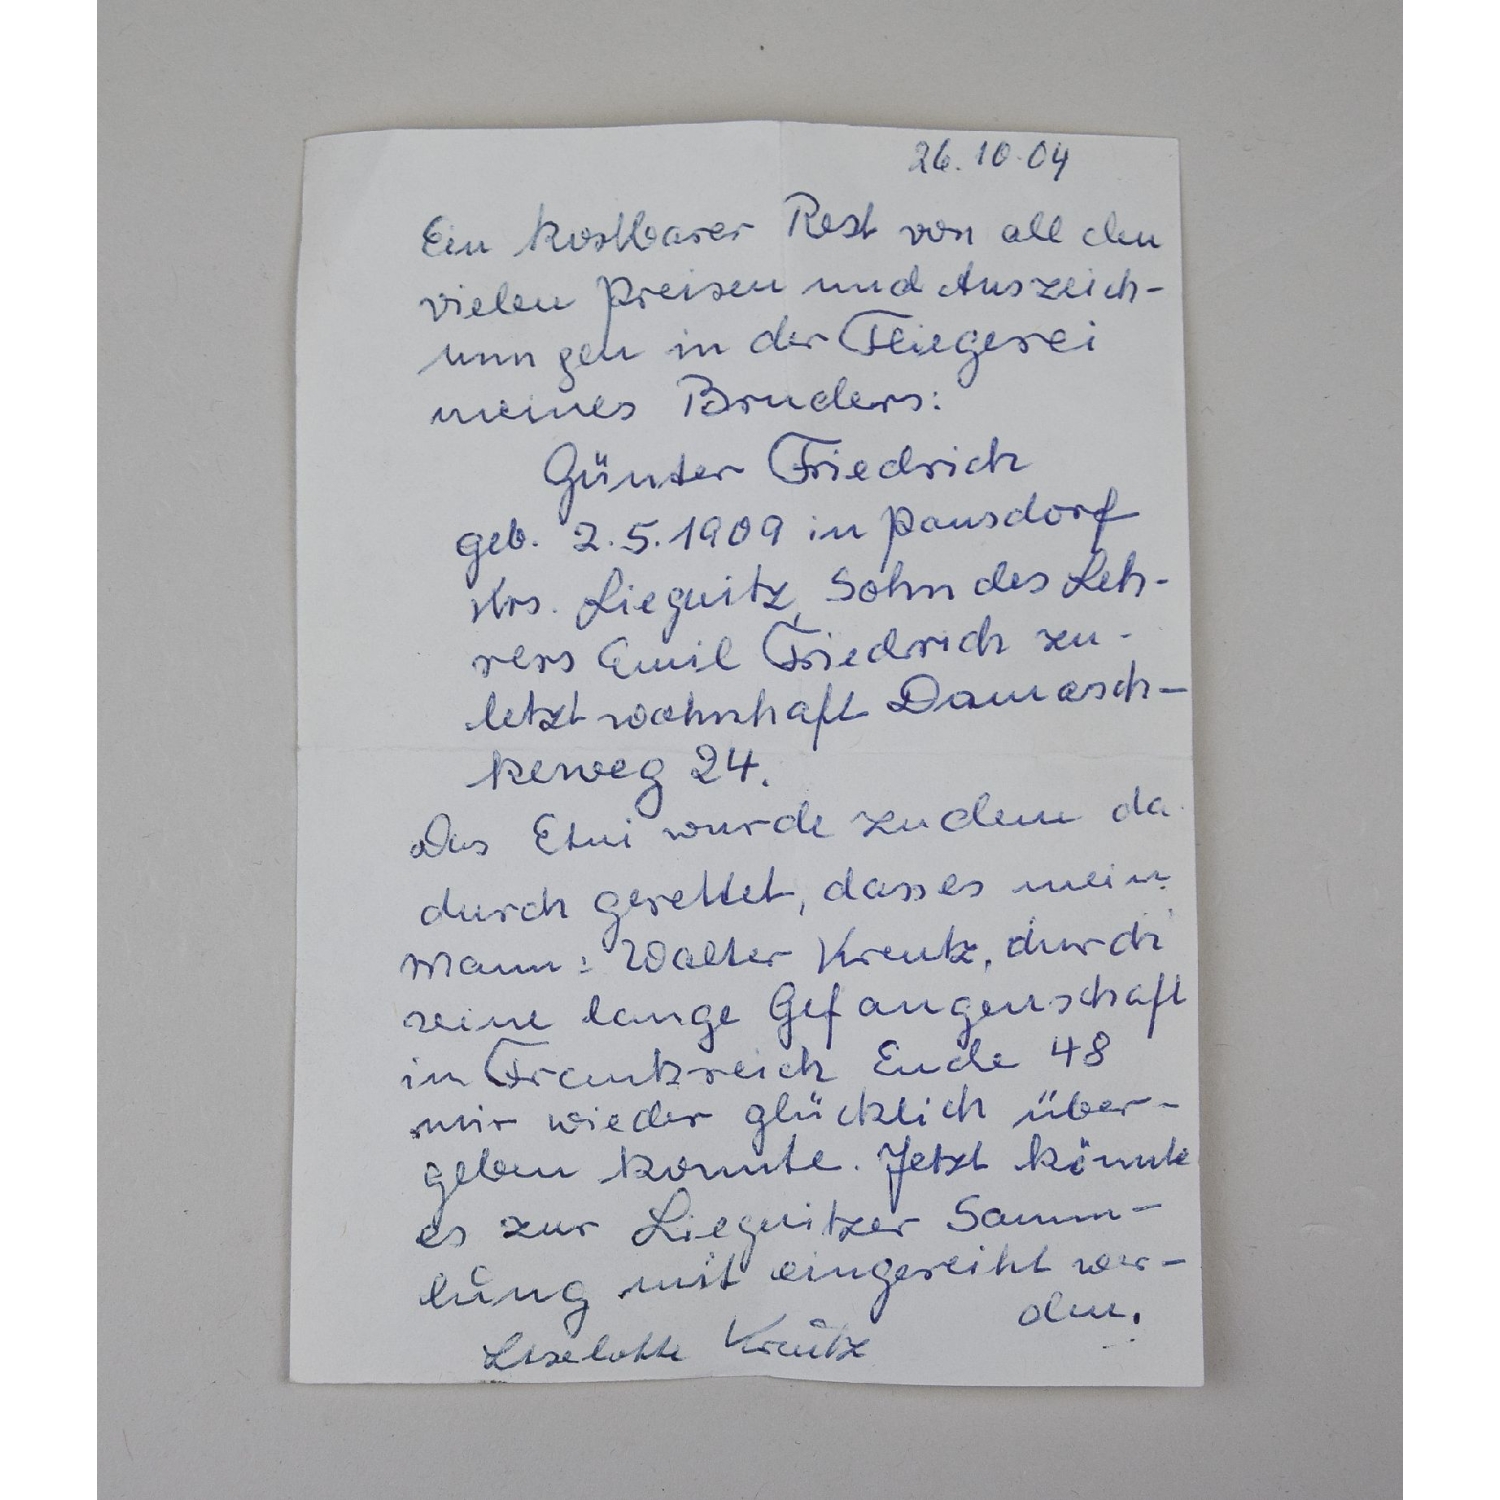 26.10.04
Ein kostbarer Rest von all den
vielen Preisen und Auszeich-
nungen in der Fliegerei
meines Bruders:
Günter Friedrich
geb. 2.5.1909 in Pansdorf
Krs. Liegnitz, Sohn des Leh-
rers Emil Friedrich zu-
letzt wohnhaft Damasch-
keweg 24.
Das Etui wurde zudem da-
durch gerettet, dass es mein
Mann: Walter Kreutz, durch
seine lange Gefangenschaft
in Frankreich Ende 48
mir wieder glücklich über-
geben konnte. Jetzt könnte
es zur Liegnitzer Samm-
lung mit eingereiht wer-
den.
Liselotte Kreutz